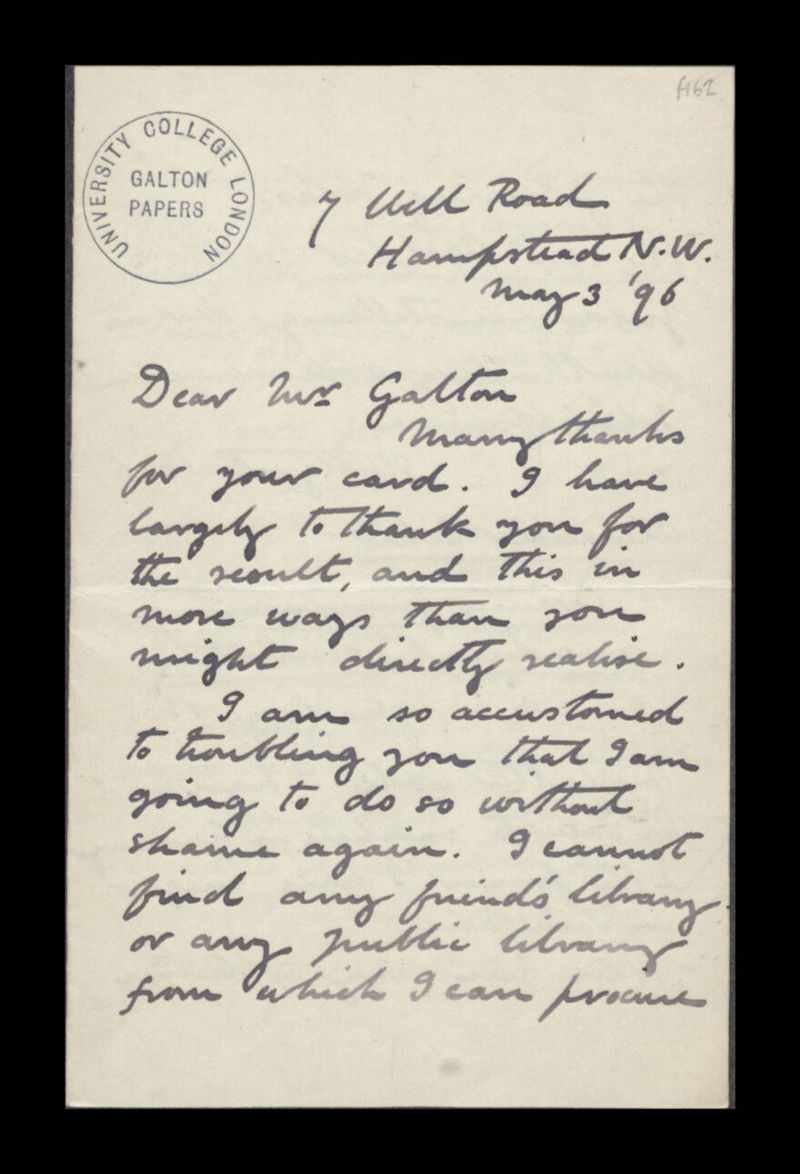 f162
UNIVERSITY COLLEGE LONDON
GALTON
PAPERS
7 Well Road
Hampstead N.W.
May 3 '96
Dear Mr Galton
Many thanks
for your card. I have
largely to thank you for
the result, and this in
more ways than you
might directly realise.
I am so accustomed
to troubling you that I am
going to do so without
shame again. I cannot
find any friend's library
or any public library
from which I can procure